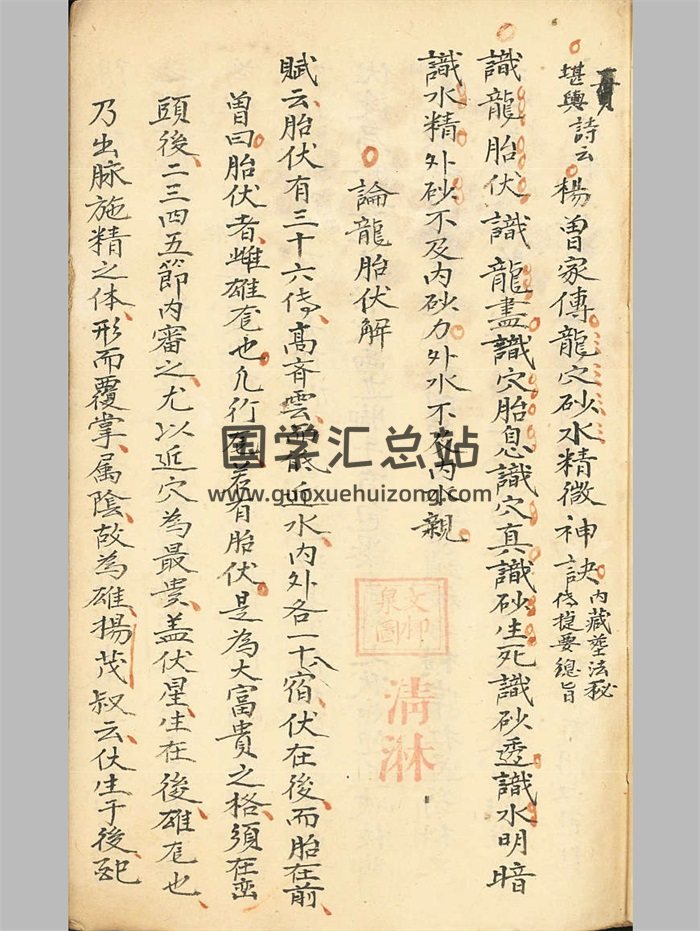 堪輿詩云楊曾家傳龍穴砂水精微神訣內藏塟法秘
傳捷要總旨
識龍胎伏識龍盡識穴胎息識穴真識砂生死識砂透識水明暗
識水精外砂不及內砂力外水不及內水親
論龍胎伏解
賦云胎伏有三十六传高齊雲 近水內外各一十八宿伏在後而胎在前
曾曰胎伏者雌雄 也凡行 若有胎伏是為大富貴之格須在巒
頭後二三四五節內審之尤以近穴為最貴盖伏星生在後雄 也
乃出脉施精之体形而覆掌属陰故為雄楊茂叔云伏生于後
国学汇总站
www.guoxuehuizong.com
清淋